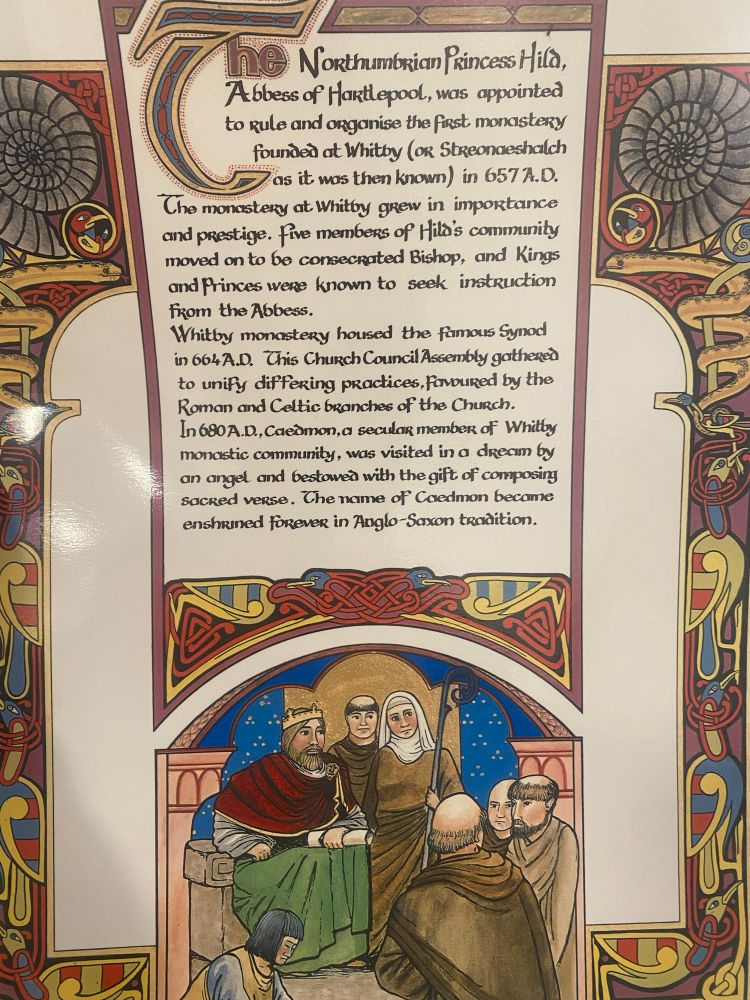 The Northumbrian Princess Hild,
Abbess of Hartlepool, was appointed
to rule and organise the first monastery
founded at Whitby (or Streonaeshalch
as it was then known) in 657 A.D.
The monastery at Whitby grew in importance
and prestige. Five members of Hild's community
moved on to be consecrated Bishop, and Kings
and Princes were known to seek instruction
from the Abbess.
Whitby monastery housed the famous Synod
in 664 A.D. This Church Council Assembly gathered
to unify differing practices, favoured by the
Roman and Celtic branches of the Church.
In 680 A.D., Caedmon, a secular member of Whitby
monastic community, was visited in a dream by
an angel and bestowed with the gift of composing
sacred verse. The name of Caedmon became
enshrined forever in Anglo-Saxon tradition.